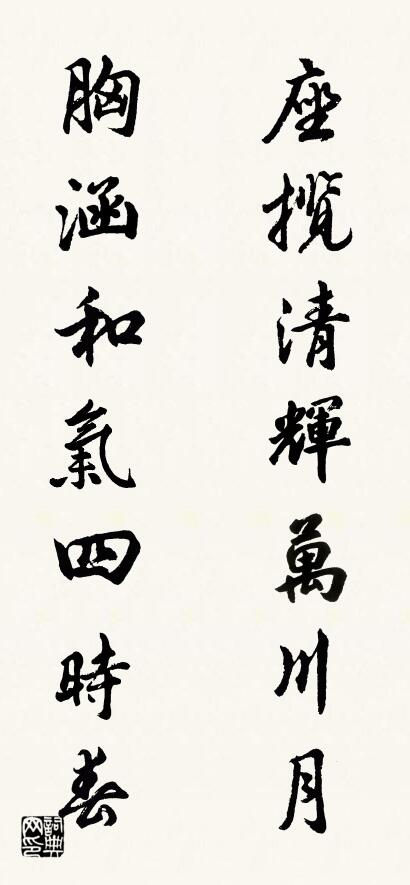 座攬清輝萬川月
胸涵和氣四時春
詞典网印